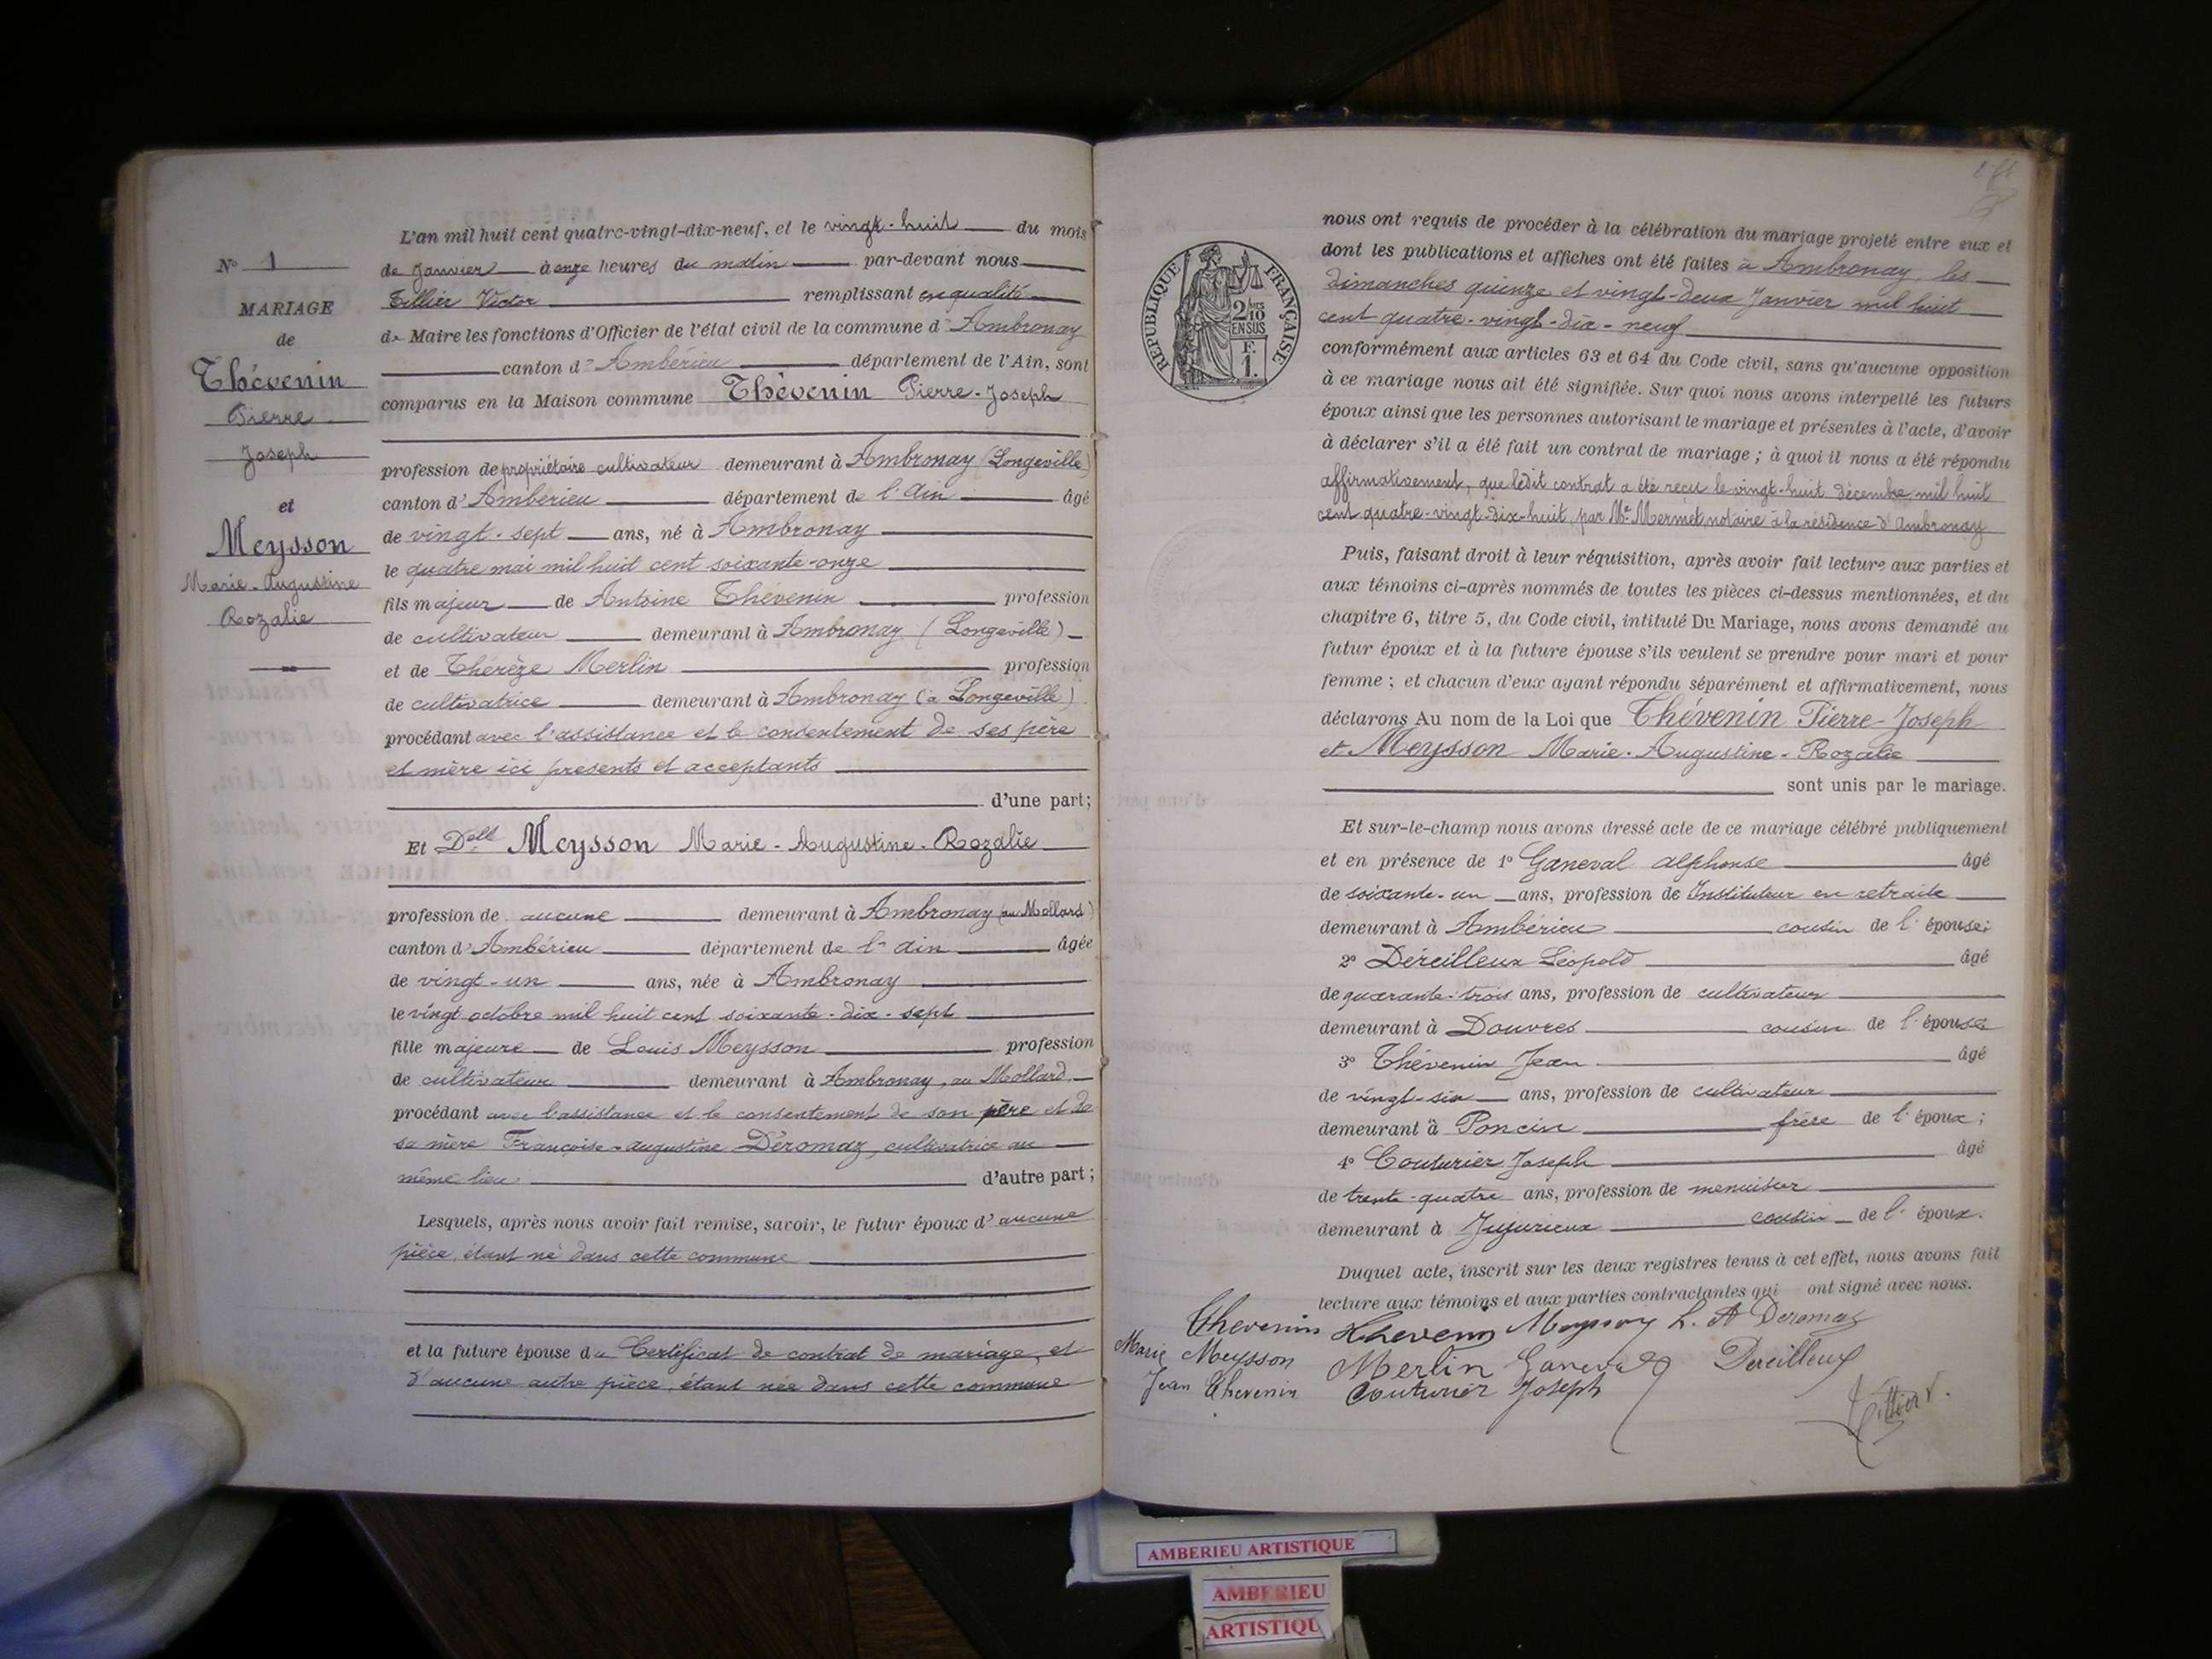 N° 1
MARIAGE
de
Thévenin
Pierre
Joseph
et
Meysson
Marie-Augustine
Rozalie
L'an mil huit cent quatre-vingt-dix-neuf, et le vingt-huit du mois
de Janvier à onze heures du matin par-devant nous
Tillier Victor remplissant en qualité
de Maire les fonctions d'Officier de l'état civil de la commune d'Ambronay
canton d'Ambérieu département de l'Ain, sont
comparus en la Maison commune Thévenin Pierre-Joseph
profession de propriétaire cultivateur demeurant à Ambronay (Longeville)
canton d'Ambérieu département de l'Ain âgé
de vingt-sept ans, né à Ambronay
le quatre mai mil huit cent soixante-onze
fils majeur de Antoine Thévenin profession
de cultivateur demeurant à Ambronay (Longeville)
et de Thérèze Merlin profession
de cultivatrice demeurant à Ambronay (à Longeville)
procédant avec l'assistance et le consentement de ses père
et mère ici présents et acceptants
d'une part;
Et Delle Meysson Marie-Augustine-Rozalie
profession de aucune demeurant à Ambronay (au Mollard)
canton d'Ambérieu département de l'Ain âgée
de vingt-un ans, née à Ambronay
le vingt octobre mil huit cent soixante-dix-sept
fille majeure de Louis Meysson profession
de cultivateur demeurant à Ambronay, au Mollard
procédant avec l'assistance et le consentement de son père et de
sa mère Françoise-Augustine Déromaz, cultivatrice au
même lieu d'autre part;
Lesquels, après nous avoir fait remise, savoir, le futur époux d'aucune
pièce, étant né dans cette commune
et la future épouse du Certificat de contrat de mariage, et
d'aucune autre pièce, étant née dans cette commune
RÉPUBLIQUE FRANÇAISE
2/10
EN SUS
F.
1.
nous ont requis de procéder à la célébration du mariage projeté entre eux et
dont les publications et affiches ont été faites à Ambronay, les
dimanches quinze et vingt-deux Janvier mil huit
cent quatre-vingt-dix-neuf
conformément aux articles 63 et 64 du Code civil, sans qu'aucune opposition
à ce mariage nous ait été signifiée. Sur quoi nous avons interpellé les futurs
époux ainsi que les personnes autorisant le mariage et présentes à l'acte, d'avoir
à déclarer s'il a été fait un contrat de mariage; à quoi il nous a été répondu
affirmativement, que ledit contrat a été reçu le vingt-huit décembre mil huit
cent quatre-vingt-dix-huit, par Me Mermet notaire à la résidence d'Ambronay
Puis, faisant droit à leur réquisition, après avoir fait lecture aux parties et
aux témoins ci-après nommés de toutes les pièces ci-dessus mentionnées, et du
chapitre 6, titre 5, du Code civil, intitulé Du Mariage, nous avons demandé au
futur époux et à la future épouse s'ils veulent se prendre pour mari et pour
femme; et chacun d'eux ayant répondu séparément et affirmativement, nous
déclarons Au nom de la Loi que Thévenin Pierre-Joseph
et Meysson Marie-Augustine-Rozalie
sont unis par le mariage.
Et sur-le-champ nous avons dressé acte de ce mariage célébré publiquement
et en présence de 1° Ganeval Alphonse âgé
de soixante-un ans, profession de Instituteur en retraite
demeurant à Ambérieu cousin de l'épouse;
2° Déreilleux Léopold âgé
de quarante-trois ans, profession de cultivateur
demeurant à Douvres cousin de l'épouse
3° Thévenin Jean âgé
de vingt-six ans, profession de cultivateur
demeurant à Poncin frère de l'époux;
4° Couturier Joseph âgé
de trente-quatre ans, profession de menuisier
demeurant à Jujurieux cousin de l'époux.
Duquel acte, inscrit sur les deux registres tenus à cet effet, nous avons fait
lecture aux témoins et aux parties contractantes qui ont signé avec nous.
Thevenin Thevenin Meysson L. A Deromaz
Marie Meysson Merlin Ganeval Dereilleux
Jean Thevenin Couturier Joseph
Tillier V.
AMBERIEU ARTISTIQUE
AMBERIEU
ARTISTIQU